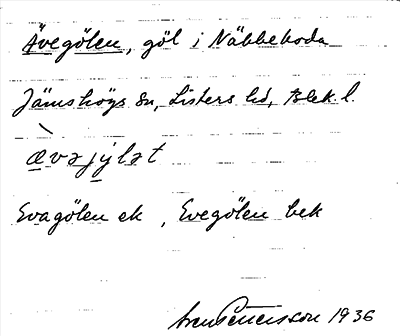 Ävegölen, göl i Näbbeboda
Jämshögs sn, Listers hd, Blek. l.
ævəjylət
Evagölen ek , Evegölen bek
1936